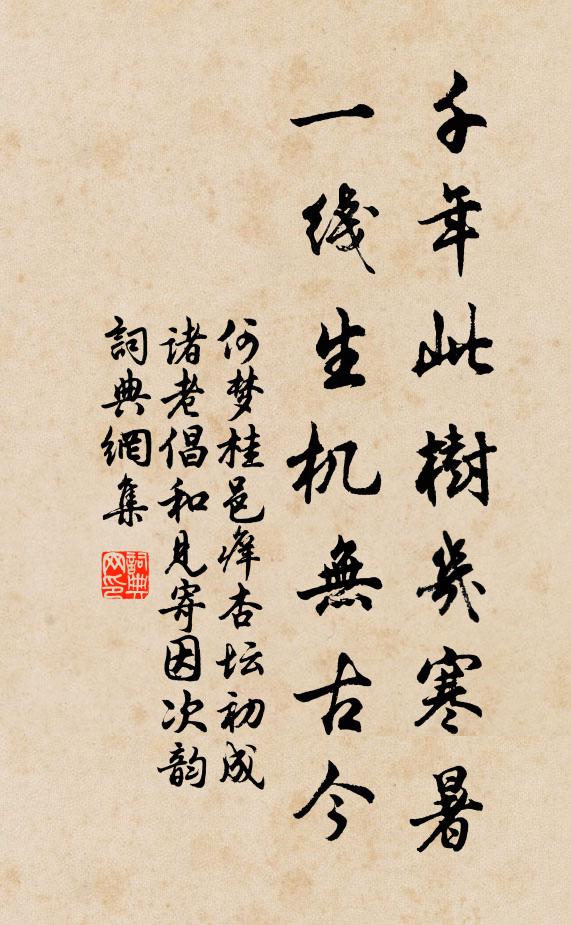 千年此樹幾寒暑
一綫生机無古今
何梦桂邑痒杏坛初成
诸老倡和見寄因次韵
詞典網集
詞典
网印